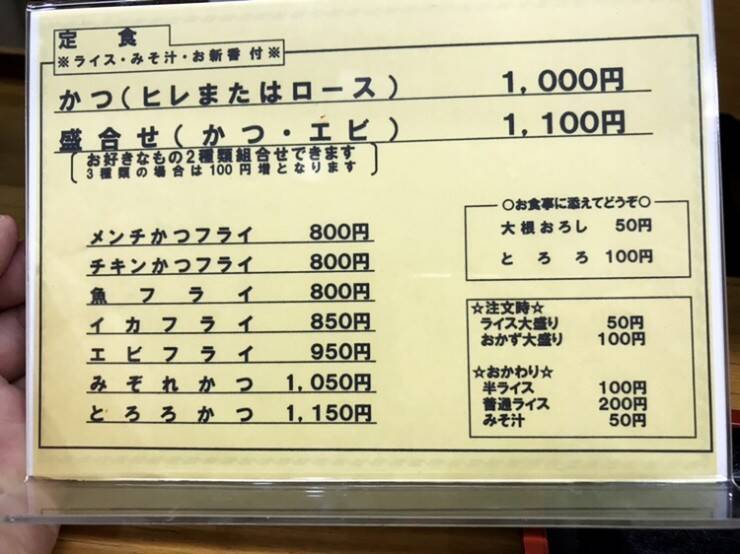 定食
※ライス・みそ汁・お新香 付※
かつ(ヒレまたはロース) 1,000円
盛合せ(かつ・エビ) 1,100円
お好きなもの2種類組合せできます
3種類の場合は100円増となります
メンチかつフライ 800円
チキンかつフライ 800円
魚フライ 800円
イカフライ 850円
エビフライ 950円
みぞれかつ 1,050円
とろろかつ 1,150円
○お食事に添えてどうぞ○
大根おろし 50円
とろろ 100円
☆注文時☆
ライス大盛り 50円
おかず大盛り 100円
☆おかわり☆
半ライス 100円
普通ライス 200円
みそ汁 50円